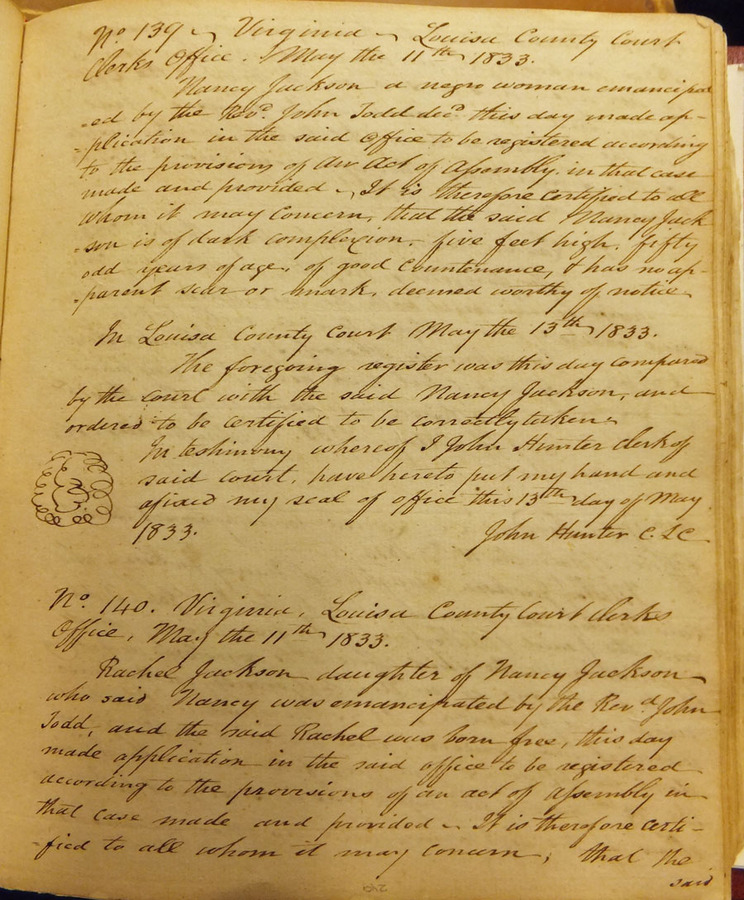 No 139 ~ Virginia ~ Louisa County Court
Clerks Office. May the 11th 1833.
Nancy Jackson a negro woman emancipat
-ed by the Revd. John Todd decd. this day made ap-
-plication in the said office to be registered according
to the provisions of an Act of Assembly in that case
made and provided ~ It is therefore certified to all
whom it may Concern, that the said Nancy Jack
-son is of dark complexion, five feet high, fifty
odd years of age, of good Countenance, & has no ap-
-parent scar or mark, deemed worthy of notice
In Louisa County Court May the 13th 1833.
The foregoing register was this day compared
by the Court with the said Nancy Jackson, and
ordered to be certified to be correctly taken
In testimony whereof I John Hunter Clerk of
said court, have hereto put my hand and
afixed my seal of office this 13th day of May
1833.
John Hunter C. L C
No. 140. Virginia, Louisa County Court Clerks
Office, May the 11th 1833.
Rachel Jackson daughter of Nancy Jackson
who said Nancy was emancipated by the Revd John
Todd, and the said Rachel was born free, this day
made application in the said office to be registered
according to the provisions of an act of assembly in
that case made and provided ~ It is therefore certi-
-fied to all whom it may concern, that the
said